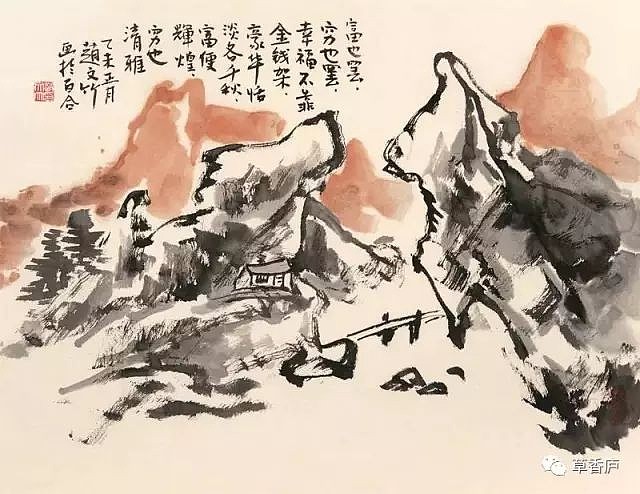 富也罢、
穷也罢、
幸福不靠
金钱架、
豪华恬
淡各千秋、
富便
辉煌、
穷也
清雅
乙未正月
赵文竹
画於百合
草香庐